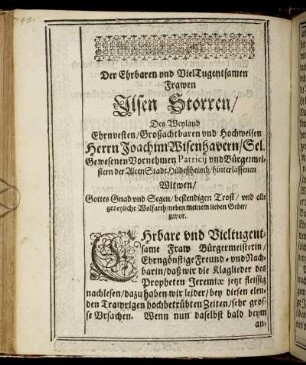 Der Ehrbaren vnd VielTugentsamen
Frawen
Ilsen Storren/
Des Weyland
Ehrnvesten/ Großachtbaren vnd Hochweisen
Herrn Joachim Wisenhavern/ Sel.
Gewesenen Vornehmen Patricij vnd Bürgemei-
stern der Alten Stadt Hildeßheimb/ hinterlassenen
Witwen/
Gottes Gnad vnd Segen/ bestendigen Trost/ vnd alle
gedeyliche Wolfarth/ neben meinem lieben Gebet/
zuvor.
Ehrbare vnd Vieltugent-
same Fraw Bürgemeisterin/
Ehrngönstige Freund- vnd Nach-
barin/ daß wir die Klaglieder des
Propheten Jeremiæ jetzt fleissig
nachlesen/ dazu haben wir leider/ bey diesen elen-
den Trawrigen hochbetrübten Zeiten/ sehr gros-
se Vrsachen. Wenn nun daselbst bald beym
an-